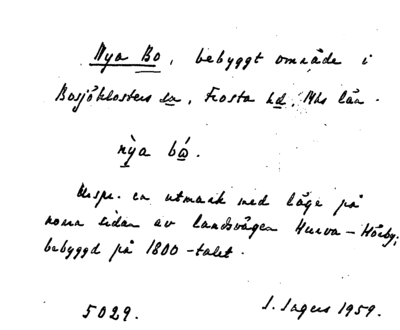 Nya Bo, bebyggt område i
Bosjöklosters sn, Frosta hd, Mhs län.
nỳa bó.
Urspr. en utmark med läge på
norra sidan av landsvägen Hurva–Hörby;
bebyggd på 1800-talet.
5029. I. Ingers 1959.